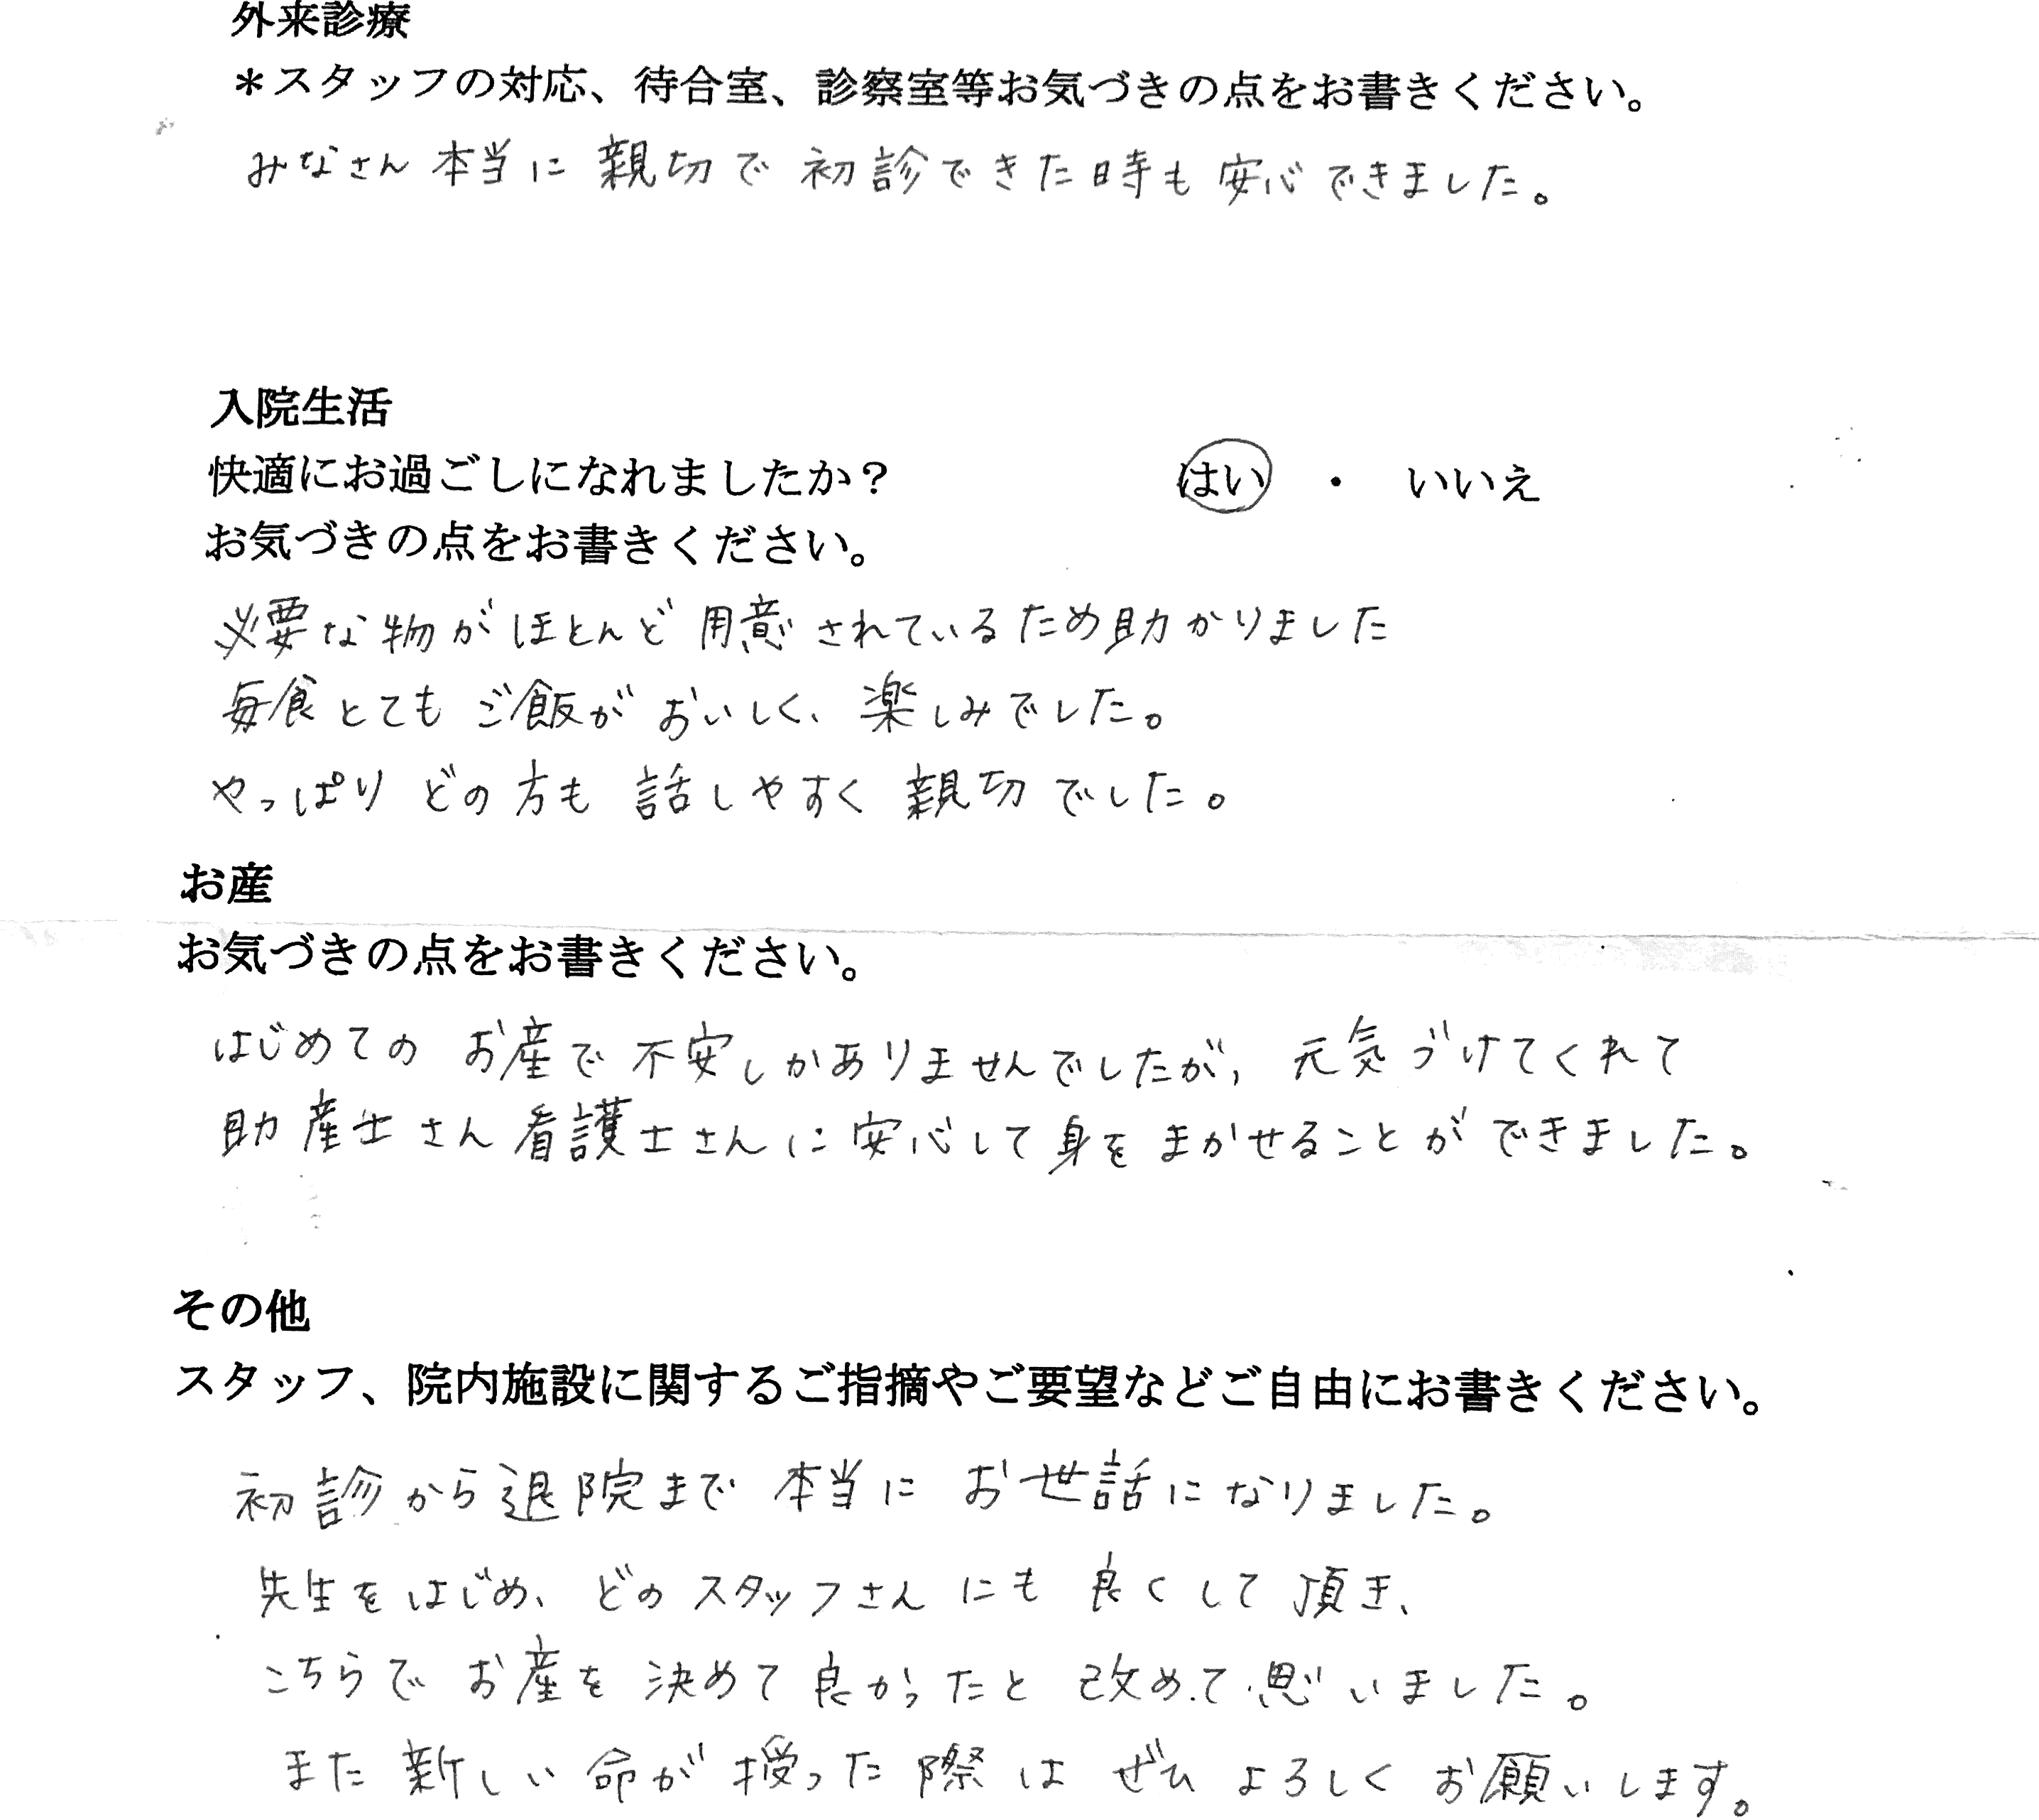 外来診療
＊スタッフの対応、待合室、診察室等お気づきの点をお書きください。
みなさん本当に親切で初診できた時も安心できました。
入院生活
快適にお過ごしになれましたか？　はい　・　いいえ
お気づきの点をお書きください。
必要な物がほとんど用意されているため助かりました
毎食とてもご飯がおいしく、楽しみでした。
やっぱりどの方も話しやすく親切でした。
お産
お気づきの点をお書きください。
はじめてのお産で不安しかありませんでしたが、元気づけてくれて
助産士さん看護士さんに安心して身をまかせることができました。
その他
スタッフ、院内施設に関するご指摘やご要望などご自由にお書きください。
初診から退院まで本当にお世話になりました。
先生をはじめ、どのスタッフさんにも良くして頂き、
こちらでお産を決めて良かったと改めて思いました。
また新しい命が授った際はぜひよろしくお願いします。